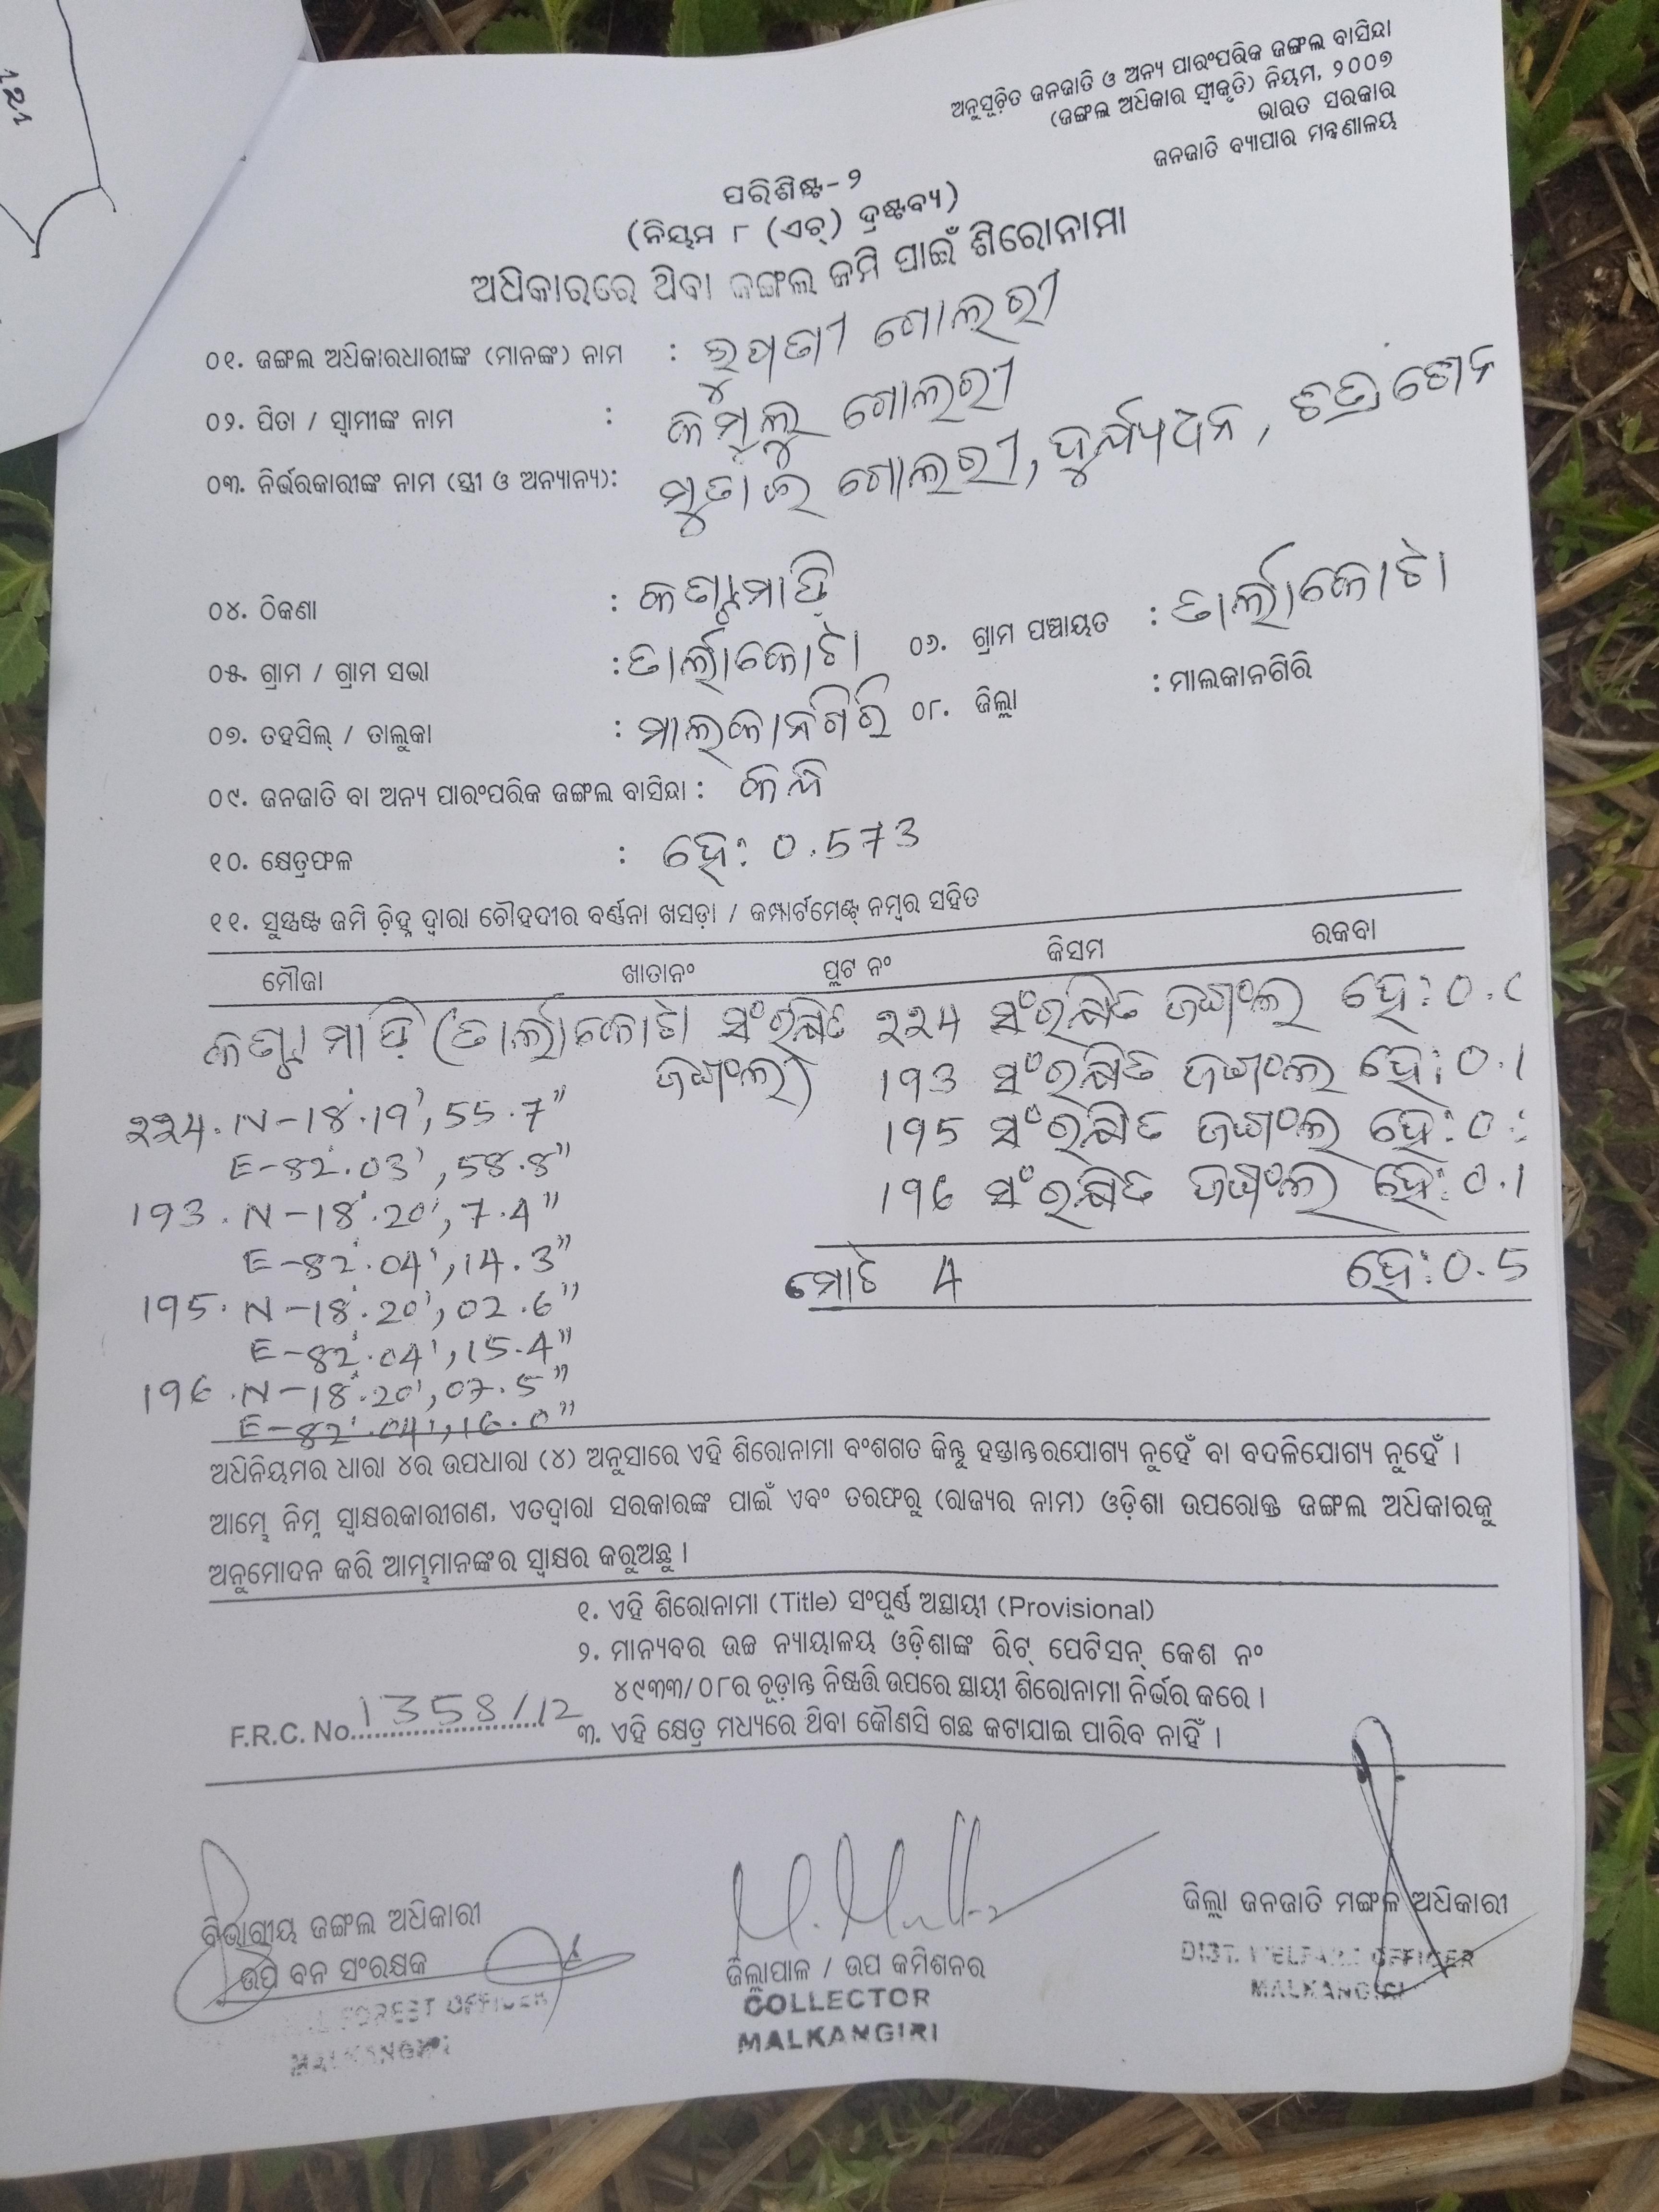 121
ଅନୁସୂଚିତ ଜନଜାତି ଓ ଅନ୍ୟ ପାରଂପରିକ ଜଙ୍ଗଲ ବାସିନ୍ଦା
(ଜଙ୍ଗଲ ଅଧିକାର ସ୍ୱୀକୃତି) ନିୟମ, ୨୦୦୭
ଭାରତ ସରକାର
ଜନଜାତି ବ୍ୟାପାର ମନ୍ତ୍ରଣାଳୟ
ପରିଶିଷ୍ଟ-୨
(ନିୟମ ୮ (ଏଚ୍) ଦ୍ରଷ୍ଟବ୍ୟ)
ଅଧିକାରରେ ଥିବା ଜଙ୍ଗଲ ଜମି ପାଇଁ ଶିରୋନାମା
୦୧. ଜଙ୍ଗଲ ଅଧିକାରଧାରୀଙ୍କ (ମାନଙ୍କ) ନାମ : ଗୋଲରୀ
୦୨. ପିତା / ସ୍ୱାମୀଙ୍କ ନାମ : ଗୋଲରୀ
୦୩. ନିର୍ଭରକାରୀଙ୍କ ନାମ (ସ୍ତ୍ରୀ ଓ ଅନ୍ୟାନ୍ୟ): ଗୋଲରୀ,
୦୪. ଠିକଣା :
୦୫. ଗ୍ରାମ / ଗ୍ରାମ ସଭା : ତାର୍ଲାକୋଟା ୦୬. ଗ୍ରାମ ପଞ୍ଚାୟତ : ତାର୍ଲାକୋଟା
୦୭. ତହସିଲ୍ / ତାଲୁକା : ମାଲକାନଗିରି ୦୮. ଜିଲ୍ଲା : ମାଲକାନଗିରି
୦୯. ଜନଜାତି ବା ଅନ୍ୟ ପାରଂପରିକ ଜଙ୍ଗଲ ବାସିନ୍ଦା :
୧୦. କ୍ଷେତ୍ରଫଳ : ହେ: 0.573
୧୧. ସୁସ୍ପଷ୍ଟ ଜମି ଚିହ୍ନ ଦ୍ୱାରା ଚୌହଦୀର ବର୍ଣ୍ଣନା ଖସଡ଼ା / କମ୍ପାର୍ଟମେଣ୍ଟ୍ ନମ୍ବର ସହିତ
ମୌଜା ଖାତାନଂ ପ୍ଲଟ ନଂ କିସମ ରକବା
(ତାର୍ଲାକୋଟା ସଂରକ୍ଷିତ 224 ସଂରକ୍ଷିତ ଜଙ୍ଗଲ ହେ: 0.
ଜଙ୍ଗଲ) 193 ସଂରକ୍ଷିତ ଜଙ୍ଗଲ ହେ: 0.1
224. N-18°.19', 55.7" 195 ସଂରକ୍ଷିତ ଜଙ୍ଗଲ ହେ: 0
E-82°.03', 58.8" 196 ସଂରକ୍ଷିତ ଜଙ୍ଗଲ ହେ: 0.1
193. N-18°.20', 7.4"
E-82°.04', 14.3" ମୋଟ 4 ହେ: 0.5
195. N-18°.20', 02.6"
E-82°.04', 15.4"
196. N-18°.20', 07.5"
E-82°.04', 16.0"
ଅଧିନିୟମର ଧାରା ୪ର ଉପଧାରା (୪) ଅନୁସାରେ ଏହି ଶିରୋନାମା ବଂଶଗତ କିନ୍ତୁ ହସ୍ତାନ୍ତରଯୋଗ୍ୟ ନୁହେଁ ବା ବଦଳିଯୋଗ୍ୟ ନୁହେଁ ।
ଆମ୍ଭେ ନିମ୍ନ ସ୍ୱାକ୍ଷରକାରୀଗଣ, ଏତଦ୍ୱାରା ସରକାରଙ୍କ ପାଇଁ ଏବଂ ତରଫରୁ (ରାଜ୍ୟର ନାମ) ଓଡ଼ିଶା ଉପରୋକ୍ତ ଜଙ୍ଗଲ ଅଧିକାରକୁ
ଅନୁମୋଦନ କରି ଆମ୍ଭମାନଙ୍କର ସ୍ୱାକ୍ଷର କରୁଅଛୁ ।
୧. ଏହି ଶିରୋନାମା (Title) ସଂପୂର୍ଣ୍ଣ ଅସ୍ଥାୟୀ (Provisional)
୨. ମାନ୍ୟବର ଉଚ୍ଚ ନ୍ୟାୟାଳୟ ଓଡ଼ିଶାଙ୍କ ରିଟ୍ ପେଟିସନ୍ କେଶ ନଂ
୪୯୩୩/୦୮ର ଚୂଡ଼ାନ୍ତ ନିଷ୍ପତ୍ତି ଉପରେ ସ୍ଥାୟୀ ଶିରୋନାମା ନିର୍ଭର କରେ ।
F.R.C. No. 1358/12
୩. ଏହି କ୍ଷେତ୍ର ମଧ୍ୟରେ ଥିବା କୌଣସି ଗଛ କଟାଯାଇ ପାରିବ ନାହିଁ ।
ବିଭାଗୀୟ ଜଙ୍ଗଲ ଅଧିକାରୀ
ଉପ ବନ ସଂରକ୍ଷକ
FOREST OFFICER
MALKANGIRI
ଜିଲ୍ଲାପାଳ / ଉପ କମିଶନର
COLLECTOR
MALKANGIRI
ଜିଲ୍ଲା ଜନଜାତି ମଙ୍ଗଳ ଅଧିକାରୀ
DIST. WELFARE OFFICER
MALKANGIRI